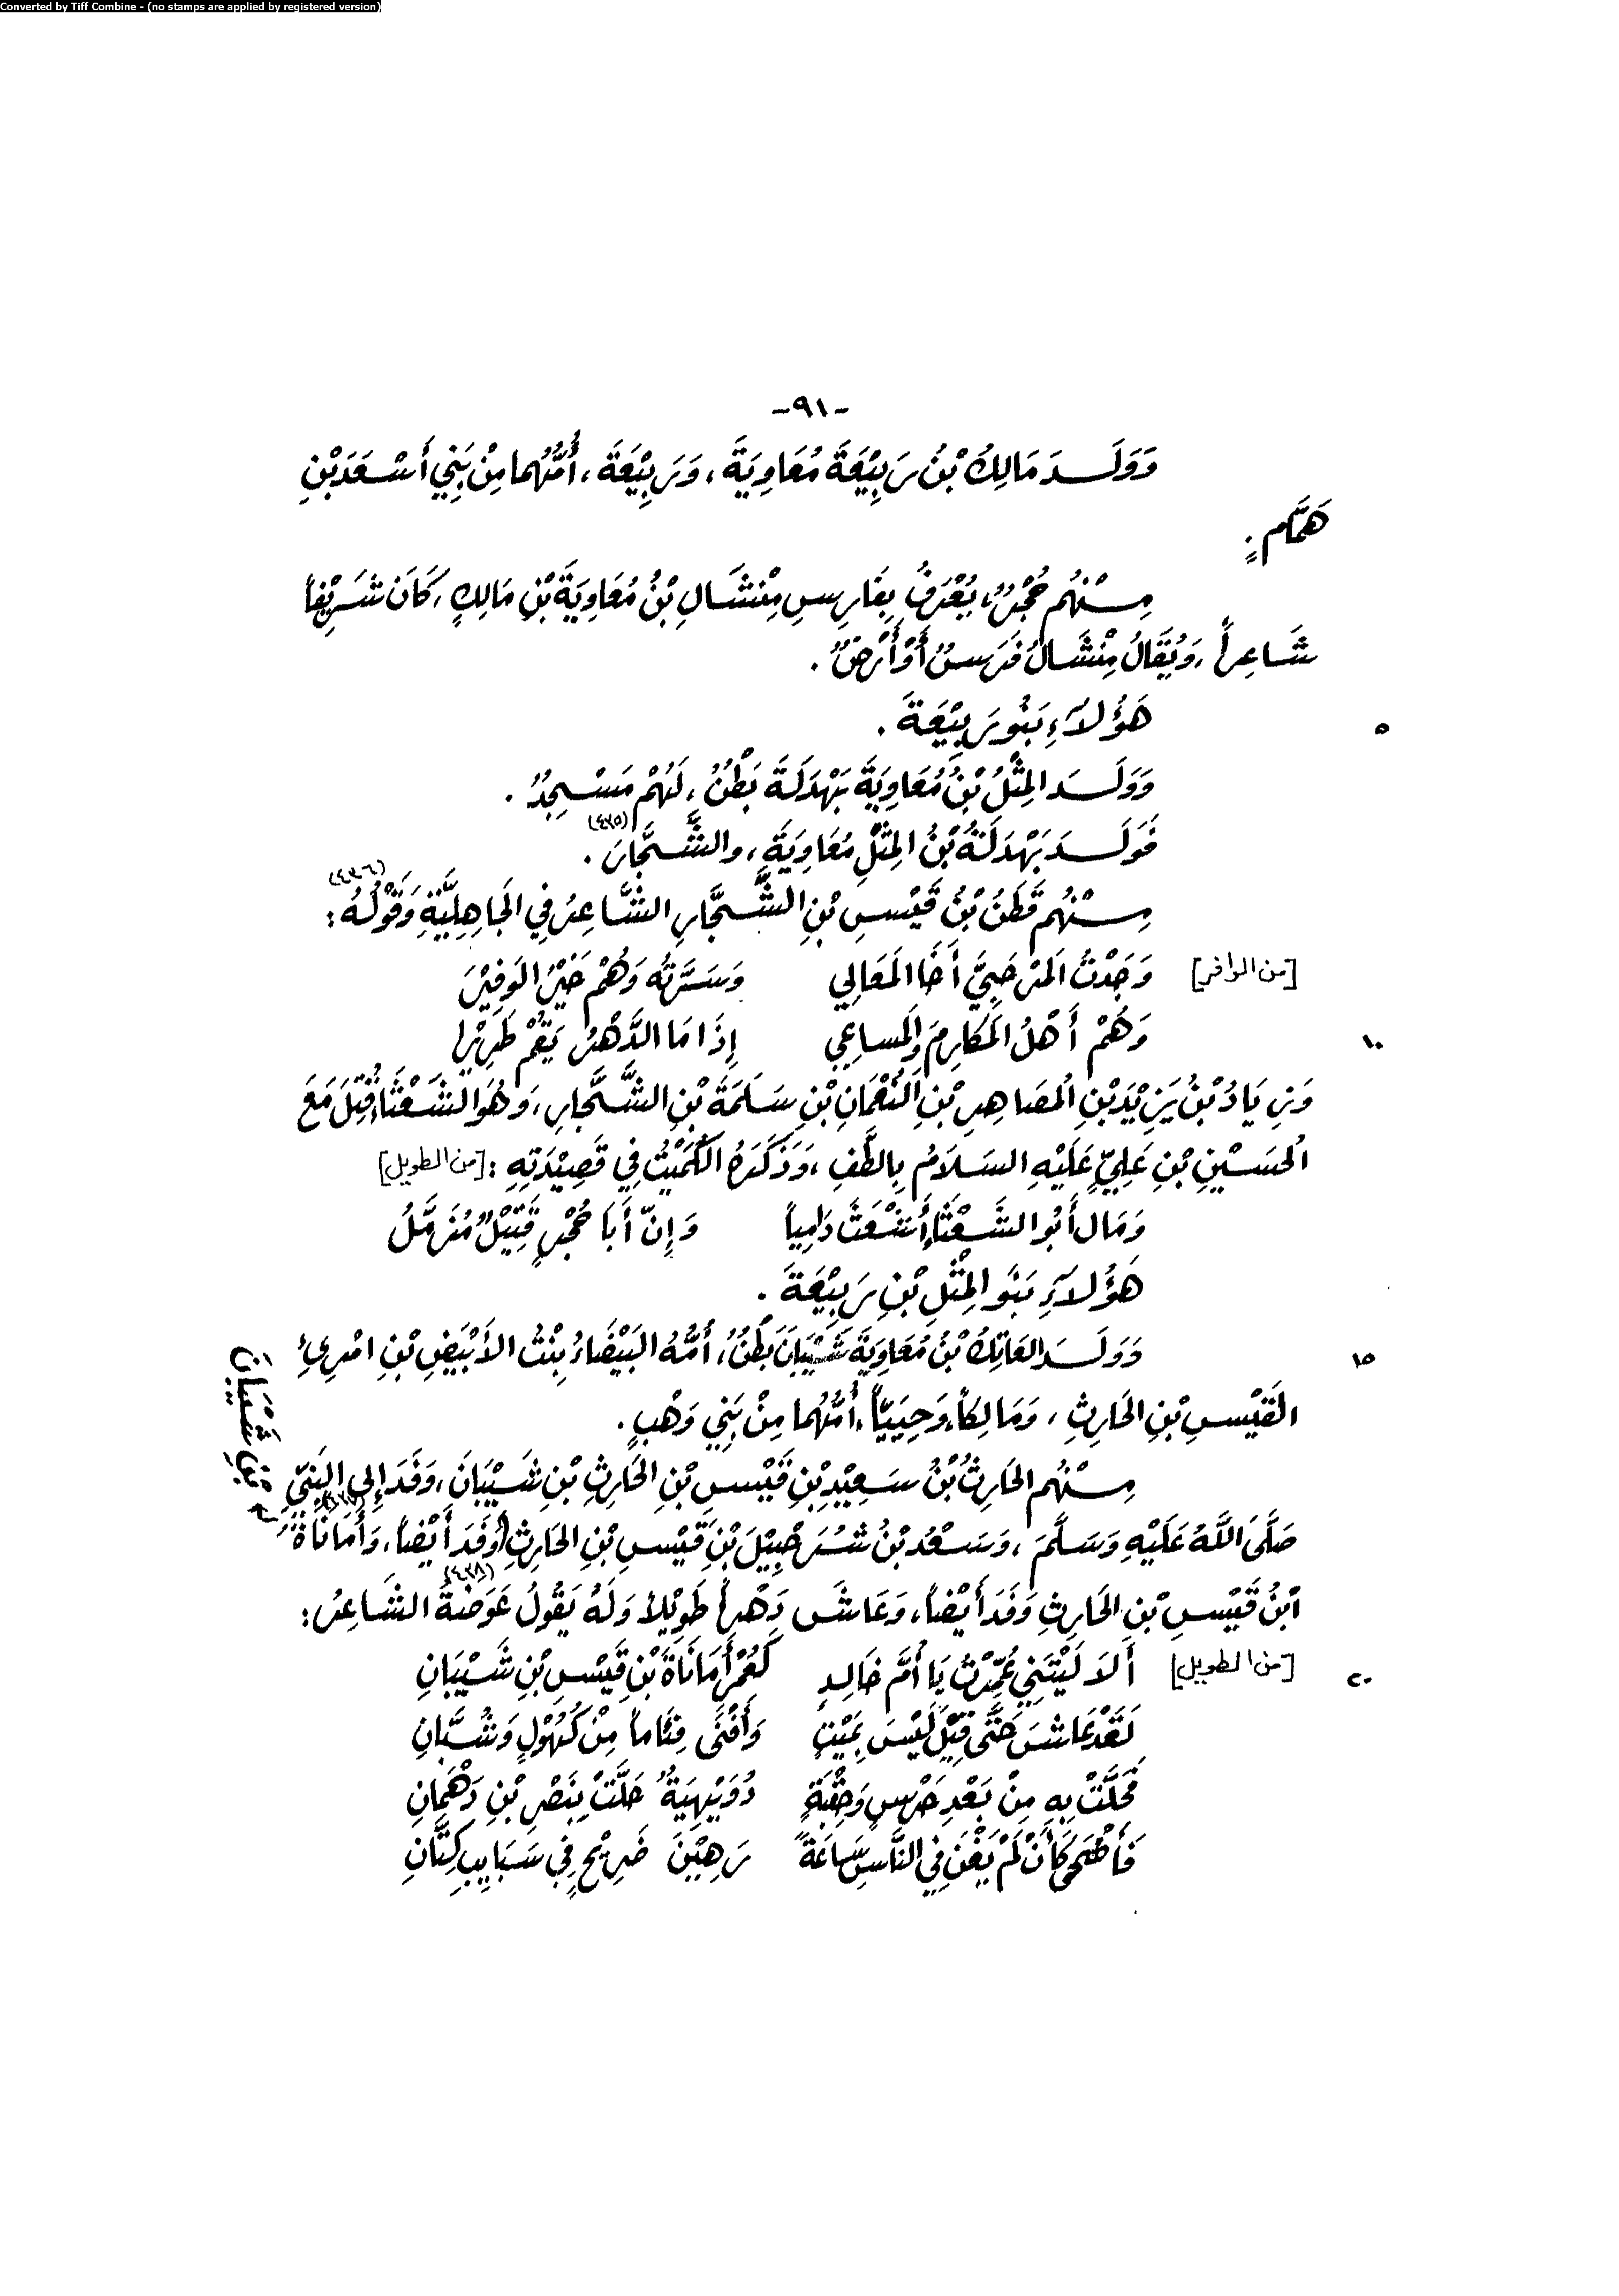 Converted by Tiff Combine - (no stamps are applied by registered version)
-٩١-
وَوَلَــدَ مَالِكُ بْنُ رَبِيْعَةَ مُعَاوِيَةَ، وَرَبِيْعَةَ، أُمُّهُما مِنْ بَنِي أَسْعَدَ بْنِ
هَمَّامٍ.
مِــنْهُم حُجْرٌ، يُعْرَفُ بِفَارِسِ مِنْشَالِ بْنُ مُعَاوِيَةَ بْنِ مَالِكٍ، كَانَ شَرِيْفاً
شَاعِراً، وَيُقَالُ مِنْشَالُ فَرَسٌ أَوْ أَرْضٌ.
هَؤُلاَءِ بَنُو رَبِيْعَةَ. ٥
وَوَلَــدَ المِثْلُ بْنُ مُعَاوِيَةَ بَهْدَلَةَ بَطْنٌ، لَهُمْ مَسْجِدٌ.
فَوَلَــدَ بَهْدَلَةُ بْنُ المِثْلِ مُعَاوِيَةَ، والشَّجَّارَ (٤٣٥).
مِــنْهُم قَطَنُ بْنُ قَيْسِ بْنِ الشَّجَّارِ الشَّاعِرُ فِي الجَاهِلِيَّةِ وَقَوْلُهُ (٤٣٦):
[من الوافر] وَجَدْتُ المَرْحَبِيَّ أَخَا المَعَالِي وَسَرَّتُه وَهُمْ خَيْرُ الوَفِيْرَ
وَهُمْ أَهْلُ المَكارِمَ وَالمَساعِي إِذَا مَا الدَّهْرُ يَقُمْ طَرِيْرا ١٠
وَزِيَادُ بْنُ يَزِيْدَ بْنِ المُصَاهِرِ بْنِ النُّعْمَانِ بْنِ سَلَمَةَ بْنِ الشَّجَّارِ، وَهُوَ الشَعْثَاءُ، قُتِلَ مَعَ
الحُسَيْنِ بْنِ عَلِيٍّ عَلَيْهِ السَلاَمُ بِالطَّفِ، وَذَكَرَهُ الكُمَيْتُ فِي قَصِيْدَتِهِ: [من الطويل]
وَمَال أَبُو الشَعْثَاءِ أَشْعَثَ دَامِياً وَإِنّ أَبَا حُجْرٍ قَتِيْلٌ مُزَمَّلُ
هَؤُلاَءِ بَنُو المِثْلِ بْنِ رَبِيْعَةَ.
وَوَلَــدَ العَاتِكُ بْنُ مُعَاوِيَةَ شَيْبَانَ بَطْنٌ، أُمُّهُ البَيْضَاءُ بِنْتُ الأَبْيَضِ بْنِ امْرِئِ ١٥
القَيْسِ بْنِ الحَارِثِ، وَمَالِكاً، وَحِيَيّاً، أُمُّهُما مِنْ بَنِي وَهْبٍ.
مِــنْهُم الحَارِثُ بْنُ سَعِيْدِ بْنِ قَيْسِ بْنِ الحَارِثِ بْنِ شَيْبَانَ، وَفَدَ إِلى النَبِيّ
صَلَّىَ اللَّهُ عَلَيْهِ وَسَلَّمَ، وَسَعْدُ بْنُ شُرَحْبِيْلَ بْنِ قَيْسِ بْنِ الحَارِثِ وَفَدَ أَيْضاً، وَأَمَانَاةُ
بْنِ شَيْبَانَ
ابْنُ قَيْسِ بْنِ الحَارِثِ وَفَدَ أَيْضاً، وَعَاشَ دَهْراً طَوِيْلاً وَلَهُ يَقُولُ عَوَضَةُ (٤٣٨) الشَاعِرُ:
[من الطويل] أَلاَ لَيْتَنِي عُمِّرْتُ يَا أُمَّ خَالِدٍ كَعُمْرِ أَمَانَاةَ بْنِ قَيْسِ بْنِ شَيْبَانِ ٢٠
لَقَدْ عَاشَ حَتَّى قِيْلَ لَيْسَ بِمَيْتٍ وَأَفْنَى فِئَاماً مِنْ كُهُوْلٍ وَشُبَّانِ
فَحَلَّتْ بِهِ مِنْ بَعْدِ حَرْسٍ وَحِقْبَةٍ دُوَيْهِيَةٌ حَلَّتْ بِنَصْرِ بْنِ دَهْمَانِ
فَأَضْحَى كَأَنْ لَمْ يَغْنَ فِي النَّاسِ سَاعَةً رَهِيْنَ ضَرِيْحٍ فِي سَبَايِبِ كِتَّانِ